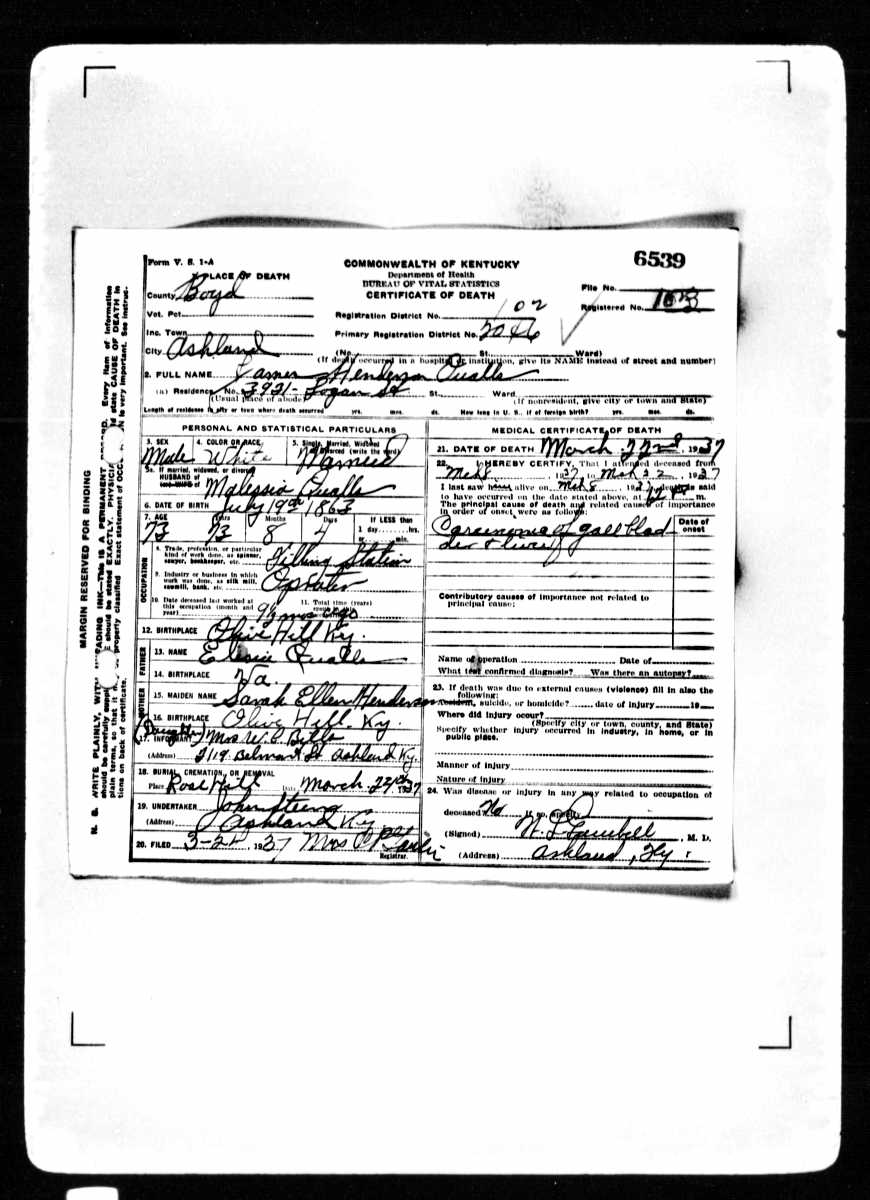 Form V. S. 1-A
COMMONWEALTH OF KENTUCKY
6539
1 PLACE OF DEATH
Department of Health
BUREAU OF VITAL STATISTICS
County Boyd
CERTIFICATE OF DEATH
File No.
Vot. Pct.
Registration District No. 102
Registered No. 103
Inc. Town
Primary Registration District No. 2046
City Ashland (No. St. Ward)
(If death occurred in a hospital or institution, give its NAME instead of street and number)
2. FULL NAME James Henderson Qualls
(a) Residence. No. 3931 - Logan St St. Ward.
(Usual place of abode) (If nonresident, give city or town and State)
Length of residence in city or town where death occurred yrs. mos. ds. How long in U. S., if of foreign birth? yrs. mos. ds.
PERSONAL AND STATISTICAL PARTICULARS
3. SEX 4. COLOR OR RACE 5. Single, Married, Widowed or Divorced (write the word)
Male White Married
5a. If married, widowed, or divorced
HUSBAND of
(or) WIFE of
Malissia Qualls
6. DATE OF BIRTH July 19th 1863
7. AGE Years Months Days If LESS than
73 73 8 4 1 day hrs.
or min.
OCCUPATION
8. Trade, profession, or particular
kind of work done, as spinner,
sawyer, bookkeeper, etc. Filling Station
9. Industry or business in which
work was done, as silk mill,
sawmill, bank, etc. Oprator
10. Date deceased last worked at
this occupation (month and
year) mos ago
11. Total time (years)
12. BIRTHPLACE Olive Hill Ky.
FATHER
13. NAME Qualls
14. BIRTHPLACE Va.
MOTHER
15. MAIDEN NAME Sarah Ellen Henderson
16. BIRTHPLACE Olive Hill, Ky.
(Daughter)
17. INFORMANT Mrs W. C. Bills
(Address) 2119 Belmont St Ashland Ky.
18. BURIAL, CREMATION, OR REMOVAL
Place Rose Hill Date March 1937
19. UNDERTAKER John Steen
(Address) Ashland Ky
20. FILED 3-24 1937 Mrs
Registrar.
MEDICAL CERTIFICATE OF DEATH
21. DATE OF DEATH March 22nd, 1937
22. I HEREBY CERTIFY, That I attended deceased from
Mch 8, 1937 to Mch 22, 1937
I last saw him alive on Mch 8, 1937, death is said
to have occurred on the date stated above, at m.
The principal cause of death and related causes of importance
in order of onset were as follows:
Date of
onset
Carcinoma of gall blad
der & liver
Contributory causes of importance not related to
principal cause:
Name of operation Date of
What test confirmed diagnosis? Was there an autopsy?
23. If death was due to external causes (violence) fill in also the
following:
Accident, suicide, or homicide? date of injury 19
Where did injury occur?
(Specify city or town, county, and State)
Specify whether injury occurred in industry, in home, or in
public place.
Manner of injury
Nature of injury
24. Was disease or injury in any way related to occupation of
deceased No If so, specify
(Signed) M. D.
(Address) Ashland, Ky.
MARGIN RESERVED FOR BINDING